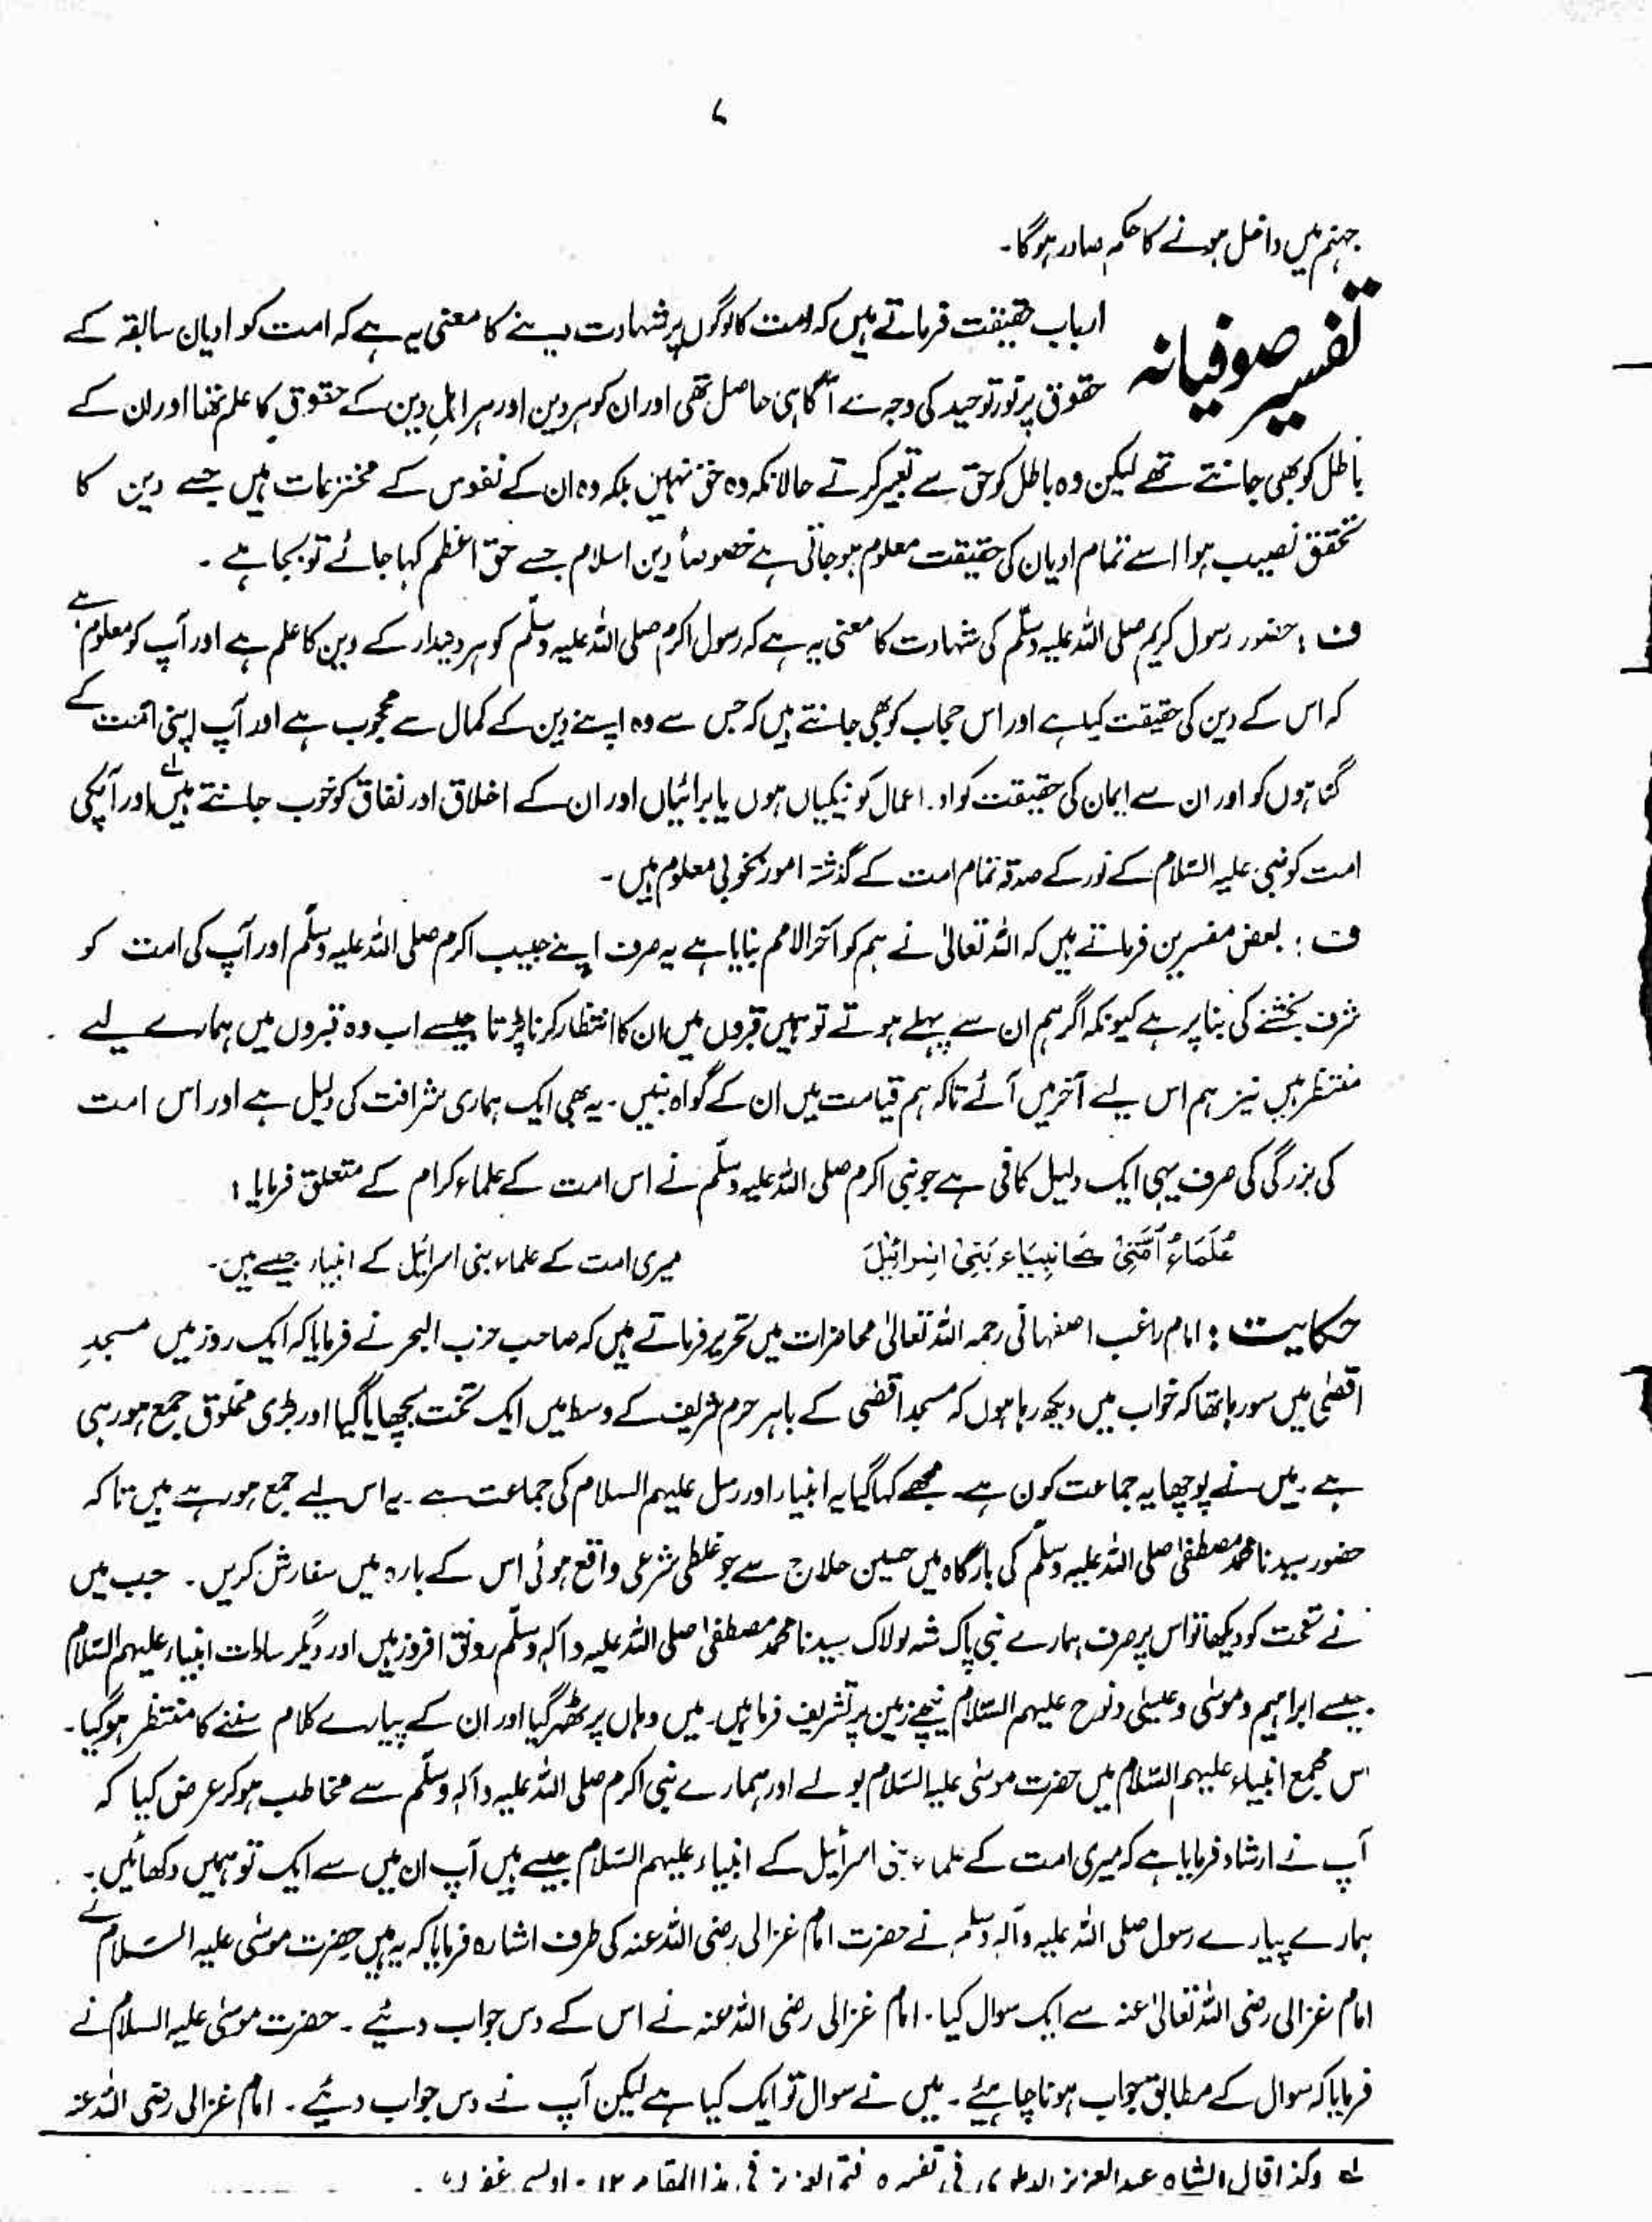 ۷
جہنم میں داخل ہونے کا حکم صادر ہوگا۔
تفسیر صوفیانہ
ارباب حقیقت فرماتے ہیں کہ امت کا لوگوں پر شہادت دینے کا معنی یہ ہے کہ امت کو ادیان سابقہ کے
حقوق پر نور توحید کی وجہ سے آگاہی حاصل تھی اور ان کو ہر دین اور ہر اہلِ دین کے حقوق کا علم تھا اور ان کے
باطل کو بھی جانتے تھے لیکن وہ باطل کو حق سے تعبیر کرتے حالانکہ وہ حق نہیں بلکہ وہ ان کے نفوس کے مخترعات ہیں جسے دین کا
تحقق نصیب ہوا اسے تمام ادیان کی حقیقت معلوم ہو جاتی ہے خصوصاً دین اسلام جسے حق اعظم کہا جائے تو بجا ہے ۔
ف : حضور رسول کریم صلی اللہ علیہ وسلّم کی شہادت کا معنی یہ ہے کہ رسول اکرم صلی اللہ علیہ وسلّم کو ہر دیندار کے دین کا علم ہے اور آپ کو معلوم ہے
کہ اس کے دین کی حقیقت کیا ہے اور اس حجاب کو بھی جانتے ہیں کہ جس سے وہ اپنے دین کے کمال سے محجوب ہے اور آپ اپنی امت کے
گناہوں کو اور ان سے ایمان کی حقیقت کو اور اعمال کو نیکیاں ہوں یا برائیاں اور ان کے اخلاق اور نفاق کو خوب جانتے ہیں لے اور آپکی
امت کو نبی علیہ السّلام کے نور کے صدقہ تمام امت کے گذشتہ امور بخوبی معلوم ہیں ۔
ف : بعض مفسرین فرماتے ہیں کہ اللہ تعالیٰ نے ہم کو آخر الامم بنایا ہے یہ صرف اپنے حبیب اکرم صلی اللہ علیہ وسلّم اور آپ کی امت کو
شرف بخشنے کی بنا پر ہے کیونکہ اگر ہم ان سے پہلے ہوتے تو ہمیں قبروں میں ان کا انتظار کرنا پڑتا جیسے اب وہ قبروں میں ہمارے لیے
منتظر ہیں نیز ہم اس لیے آخر میں آئے تاکہ ہم قیامت میں ان کے گواہ بنیں ۔ یہ بھی ایک ہماری شرافت کی دلیل ہے اور اس امت
کی بزرگی کی صرف یہی ایک دلیل کافی ہے جو نبی اکرم صلی اللہ علیہ وسلّم نے اس امت کے علماء کرام کے متعلق فرمایا :
عُلَمَاءُ اُمَّتِیْ کَاَنْبِیَاءِ بَنِیْ اِسْرَائِیْلَ میری امت کے علماء بنی اسرائیل کے انبیاء جیسے ہیں۔
حکایت : امام راغب اصفہانی رحمہ اللہ تعالیٰ محاضرات میں تحریر فرماتے ہیں کہ صاحب حزب البحر نے فرمایا کہ ایک روز میں مسجدِ
اقصٰی میں سو رہا تھا کہ خواب میں دیکھ رہا ہوں کہ مسجد اقصٰی کے باہر حرم شریف کے وسط میں ایک تخت بچھایا گیا اور بڑی مخلوق جمع ہو رہی
ہے ۔ میں نے پوچھا یہ جماعت کون ہے ۔ مجھے کہا گیا یہ انبیاء اور رسل علیہم السلام کی جماعت ہے ۔ یہ اس لیے جمع ہو رہے ہیں تاکہ
حضور سیدنا محمد مصطفیٰ صلی اللہ علیہ وسلّم کی بارگاہ میں حسین حلاج سے جو غلطی شرعی واقع ہوئی اس کے بارہ میں سفارش کریں ۔ جب میں
نے تخت کو دیکھا تو اس پر صرف ہمارے نبی پاک شہ لولاک سیدنا محمد مصطفیٰ صلی اللہ علیہ وآلہٖ وسلّم رونق افروز ہیں اور دیگر سادات انبیاء علیہم السّلام
جیسے ابراہیم و موسٰی و عیسٰی و نوح علیہم السّلام نیچے زمین پر تشریف فرما ہیں ۔ میں وہاں پر ٹھہر گیا اور ان کے پیارے کلام سننے کا منتظر ہو گیا ۔
اس مجمع انبیاء علیہم السّلام میں حضرت موسٰی علیہ السّلام بولے اور ہمارے نبی اکرم صلی اللہ علیہ وآلہٖ وسلّم سے مخاطب ہو کر عرض کیا کہ
آپ نے ارشاد فرمایا ہے کہ میری امت کے علماء بنی اسرائیل کے انبیاء علیہم السّلام جیسے ہیں آپ ان میں سے ایک تو ہمیں دکھائیں ۔
ہمارے پیارے رسول صلی اللہ علیہ وآلہٖ وسلم نے حضرت امام غزالی رضی اللہ عنہ کی طرف اشارہ فرمایا کہ یہ ہیں حضرت موسٰی علیہ السّلام نے
امام غزالی رضی اللہ تعالیٰ عنہ سے ایک سوال کیا ۔ امام غزالی رضی اللہ عنہ نے اس کے دس جواب دیئے ۔ حضرت موسٰی علیہ السلام نے
فرمایا کہ سوال کے مطابق جواب ہونا چاہیئے ۔ میں نے سوال تو ایک کیا ہے لیکن آپ نے دس جواب دیئے ۔ امام غزالی رضی اللہ عنہ
لے وکذا قال الشاہ عبدالعزیز الدہلوی فی تفسیرہ فتح العزیز فی ہذا المقام ۱۲ ۔ اویسی غفرلہ